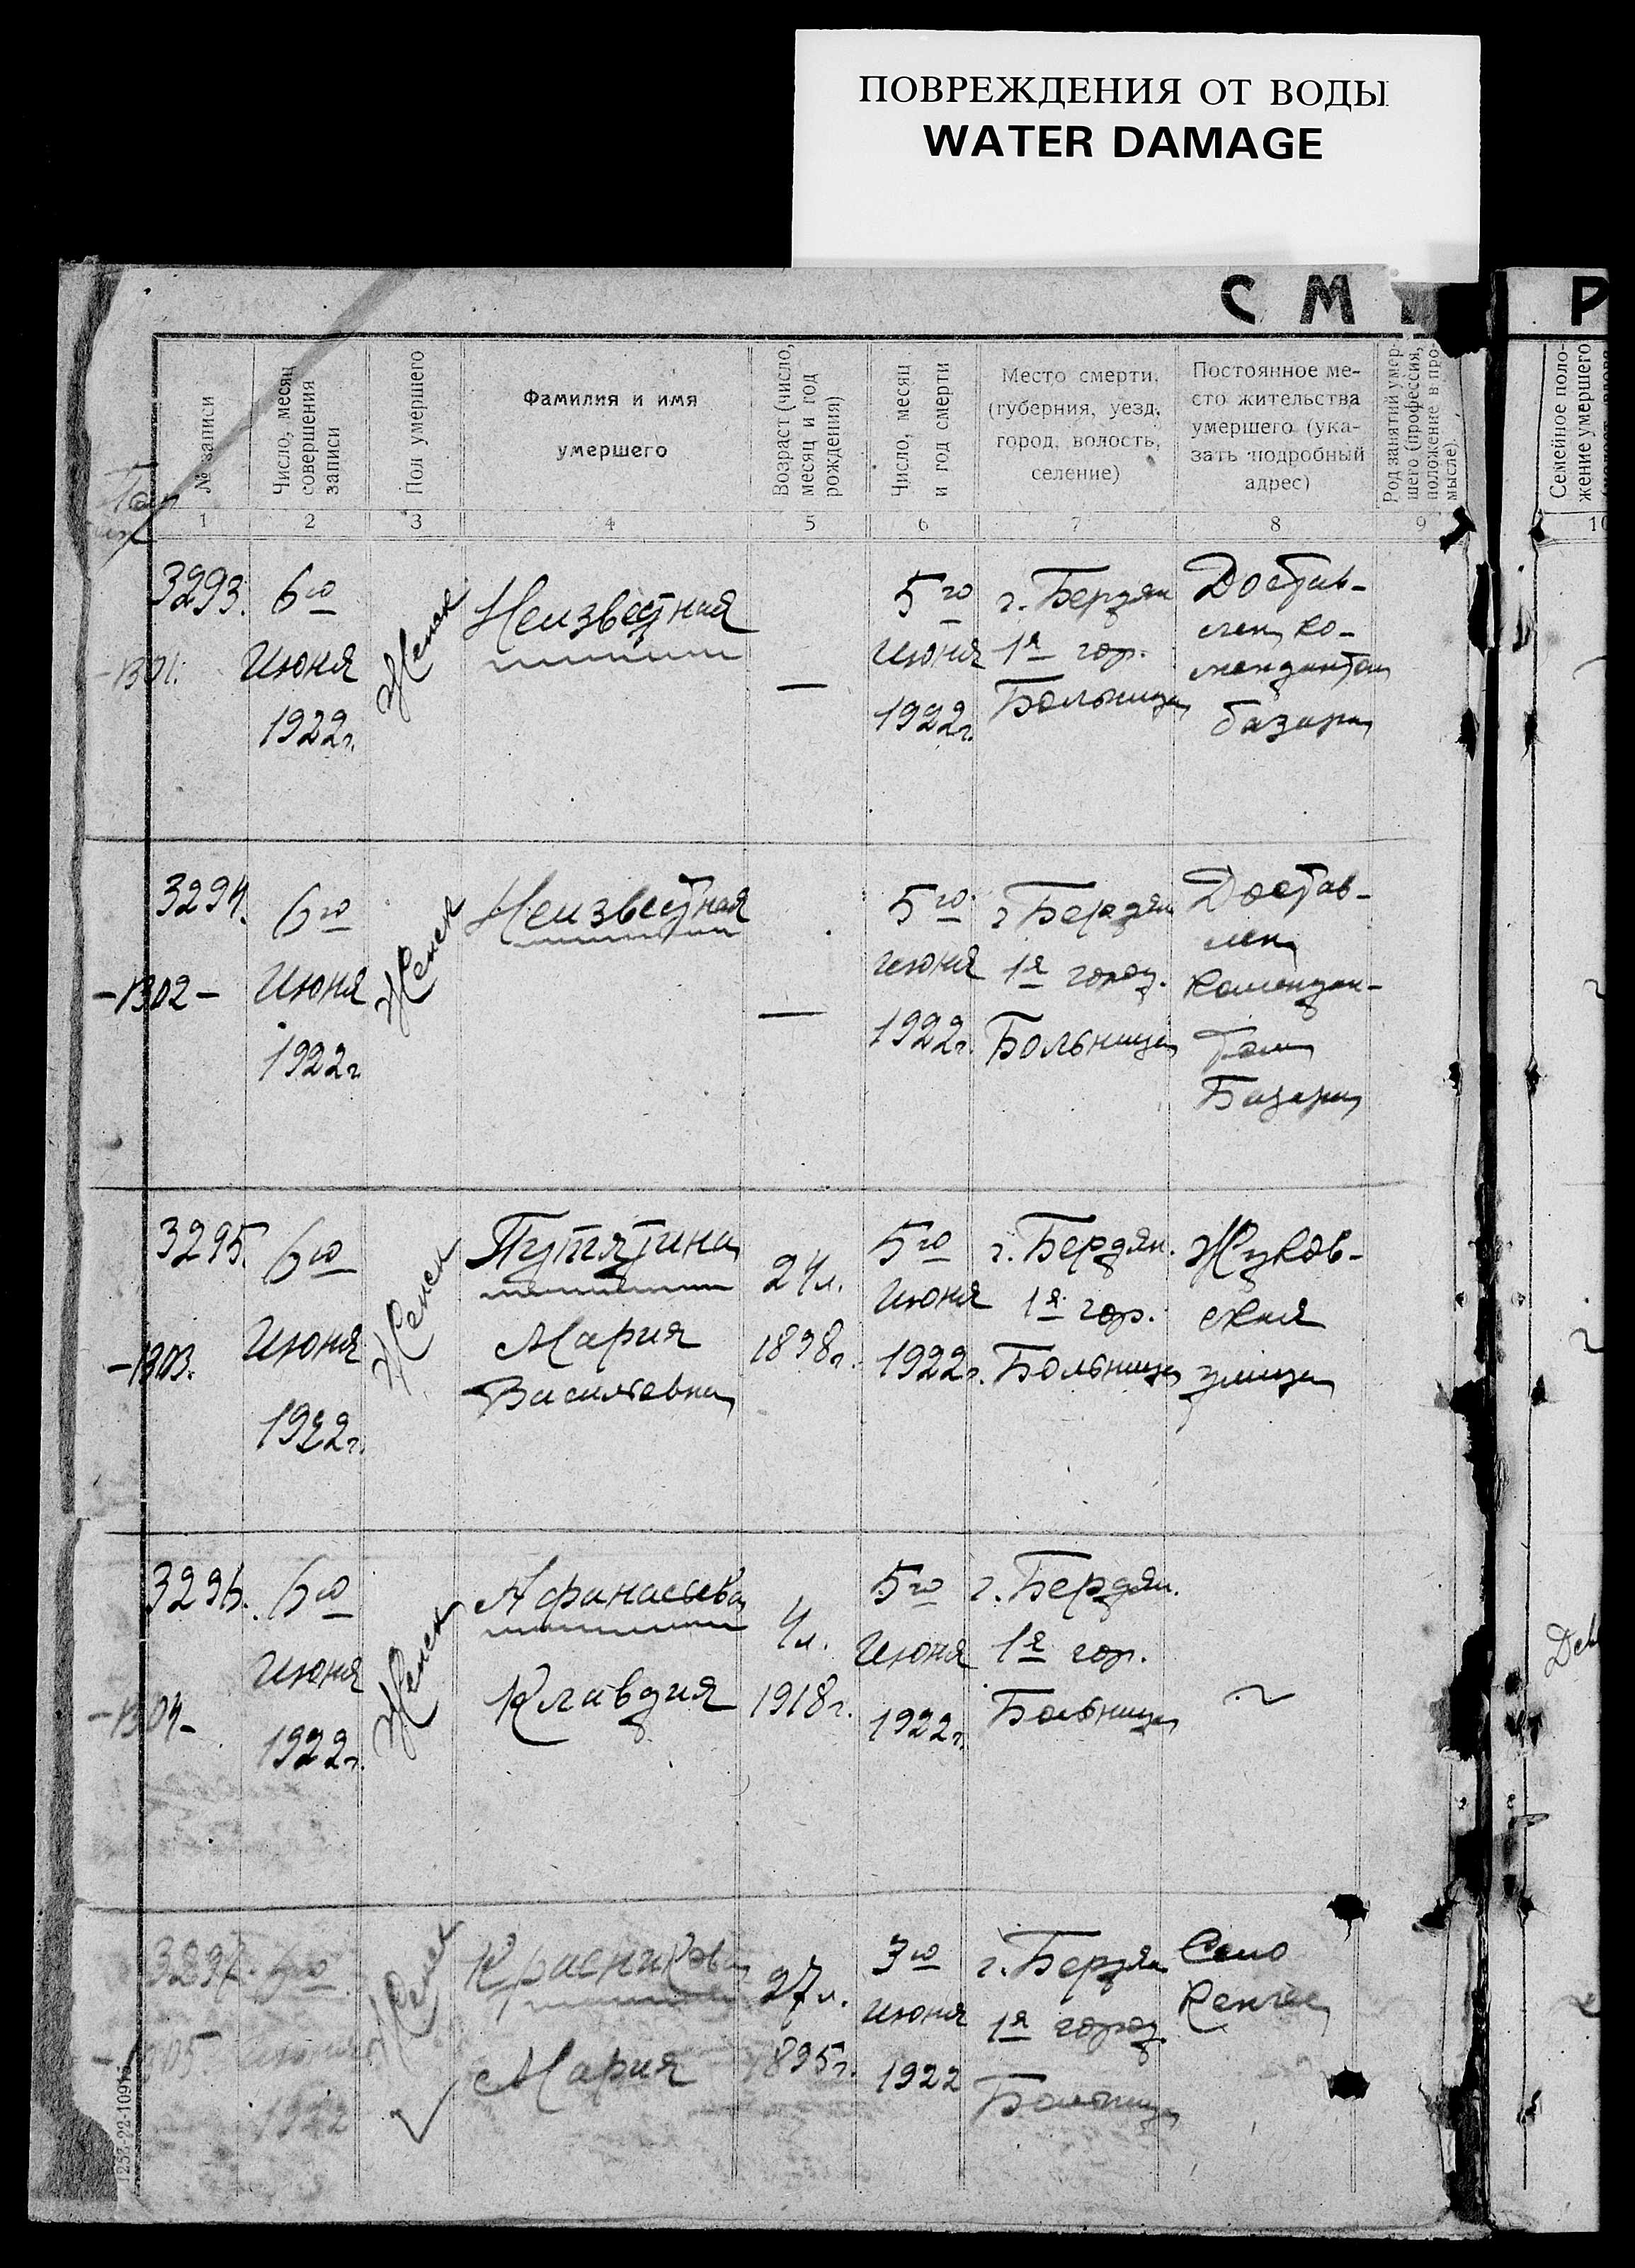 ПОВРЕЖДЕНИЯ ОТ ВОДЫ
WATER DAMAGE
С М
Р
№ записи
Число, месяц
совершения
записи
Пол умершего
Фамилия и имя
умершего
Возраст (число,
месяц и год
рождения)
Число, месяц
и год смерти
Место смерти,
(губерния, уезд,
город, волость,
селение)
Постоянное ме-
сто жительства
умершего (ука-
зать подробный
адрес)
Род занятий умер-
шего (профессия,
положение в про-
мысле)
Семейное поло-
жение умершего
1
2
3
4
5
6
7
8
9
10
3293.
-1301.
6го
Июня
1922г.
Женск
Неизвестная
—
5го
июня
1922г.
г. Бердян
1я гор.
Больница
Достав-
лен ко-
мендантом
базара
3294.
-1302-
6го
Июня
1922г
Женск
Неизвестная
—
5го
июня
1922г.
г Бердян
1я город.
Больница
Достав-
лен
комендан-
том
Базара
3295.
-1303.
6го
Июня
1922г.
Женск
Путятина
Мария
Васильевна
24л.
1898г.
5го
июня
1922г.
г. Бердян.
1я гор.
Больница
Жуков-
ская
улица
3296.
-1304-
6го
Июня
1922г.
Женск
Афанасьева
Клавдия
4л.
1918г.
5го
Июня
1922г.
г. Бердян.
1я гор.
Больница
~
3297.
6го
1922
Женск
Красникова
Мария
27л.
1895г.
3го
июня
1922
г. Бердян
1я город.
Больница
Село
1253-22-10976